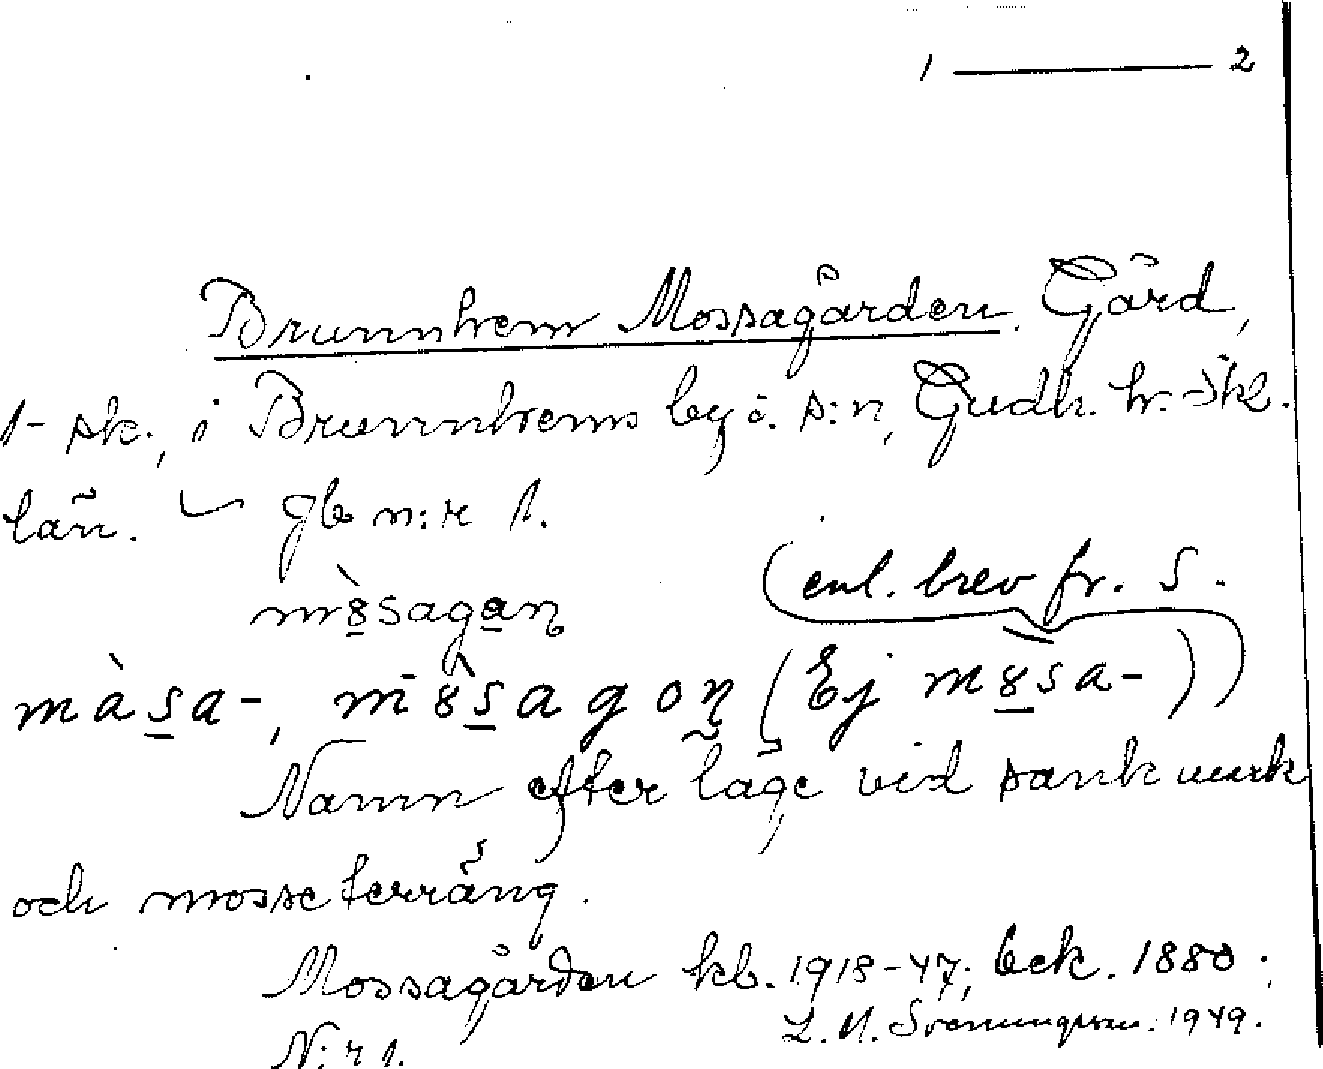 1 ——— 2
Brunnhem Mossagården. Gård,
1-sk., i Brunnhems by o. s:n, Gudh. hr. Skb.
län. gb n:r 1.
(enl. brev fr. S.
mɷ̀sagan
màsa-, mɷ̂sagon (Ej mɷsa-))
Namn efter läge vid sank mark
och mosseterräng.
Mossagården kb. 1918-47; beck. 1880;
N:r 1.
L. M. Svenungsson. 1949.